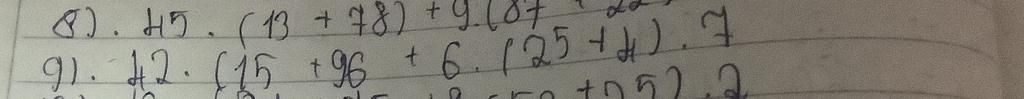 8). 45. (13 + 78) + 9.(87 + 22
9). 42. (15 + 96 + 6. (25 + 4). 7
+ 25). 2